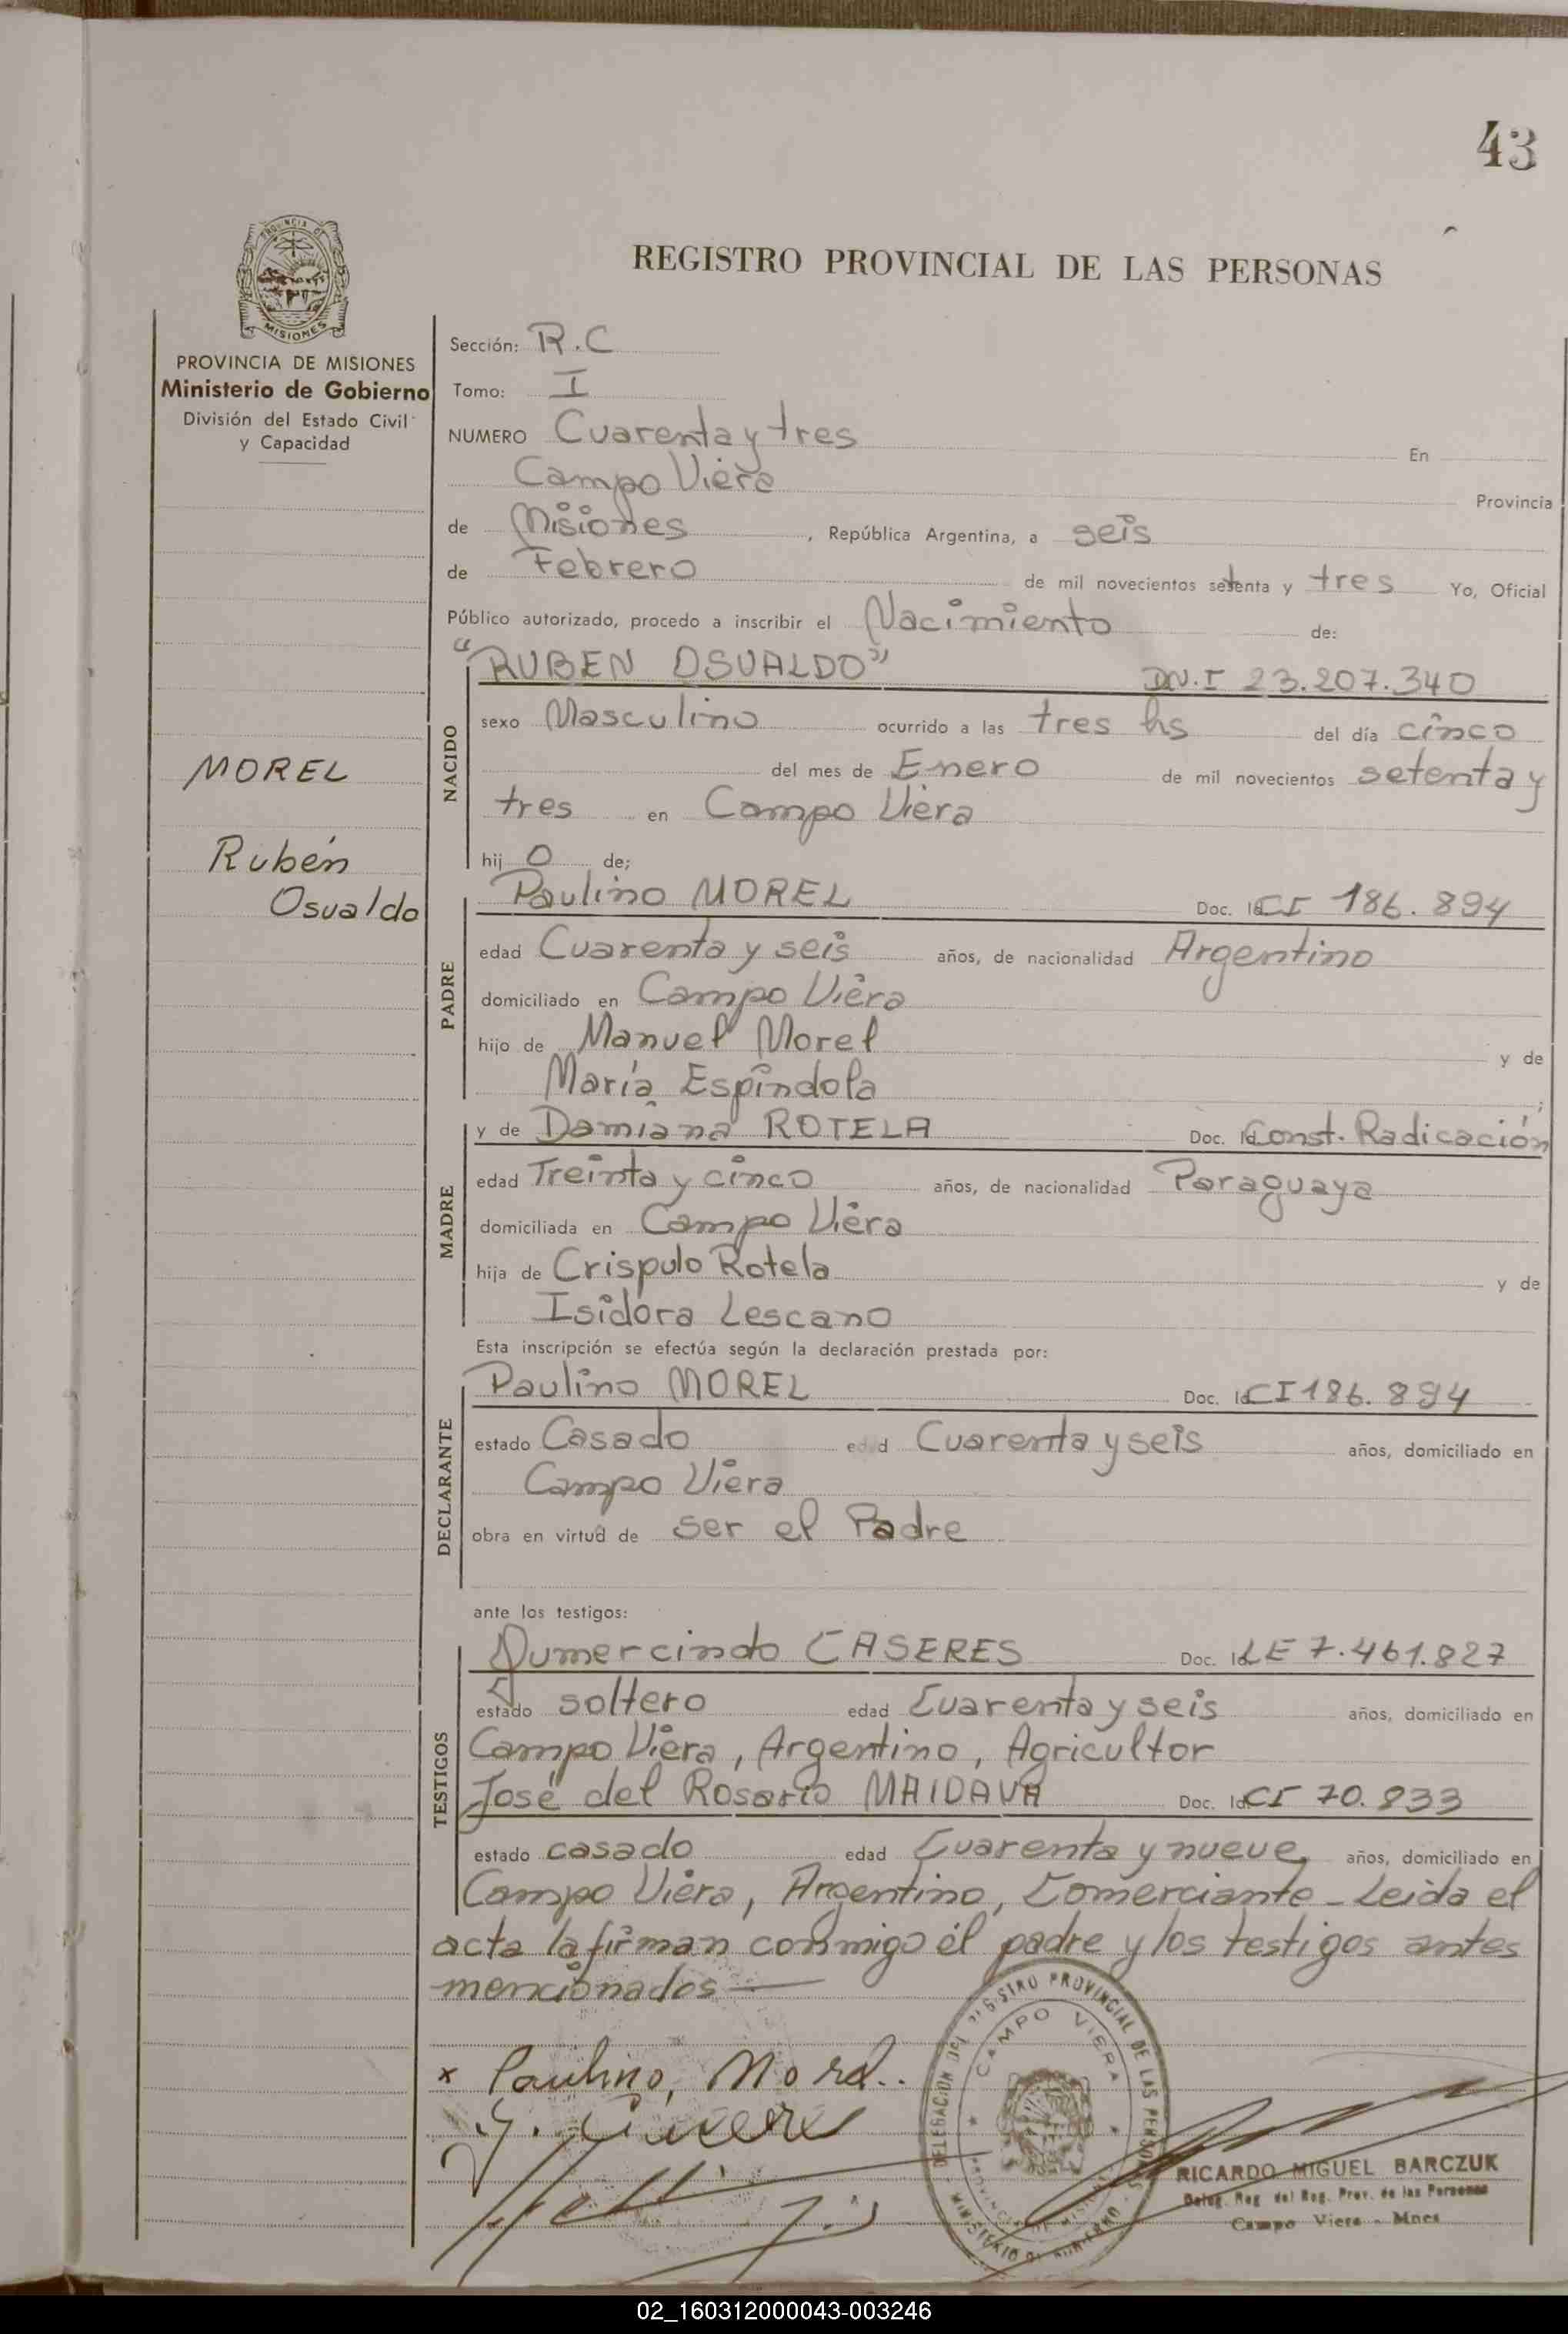 43
PROVINCIA DE
MISIONES
REGISTRO PROVINCIAL DE LAS PERSONAS
PROVINCIA DE MISIONES
Ministerio de Gobierno
División del Estado Civil
y Capacidad
MOREL
Rubén
Osvaldo
Sección: R.C
Tomo: I
NUMERO Cuarenta y tres En
Campo Viera Provincia
de Misiones, República Argentina, a seis
de Febrero de mil novecientos setenta y tres Yo, Oficial
Público autorizado, procedo a inscribir el Nacimiento de:
"RUBEN OSVALDO" DN.I 23.207.340
NACIDO
sexo Masculino ocurrido a las tres hs del día cinco
del mes de Enero de mil novecientos setenta y
tres en Campo Viera
hij o de;
PADRE
Paulino MOREL Doc. Id CI 186.894
edad Cuarenta y seis años, de nacionalidad Argentino
domiciliado en Campo Viera
hijo de Manuel Morel y de
María Espíndola;
MADRE
y de Damiana ROTELA Doc. Id Const. Radicación
edad Treinta y cinco años, de nacionalidad Paraguaya
domiciliada en Campo Viera
hija de Crispulo Rotela y de
Isidora Lescano
Esta inscripción se efectúa según la declaración prestada por:
DECLARANTE
Paulino MOREL Doc. Id CI 186.894
estado Casado edad Cuarenta y seis años, domiciliado en
Campo Viera
obra en virtud de ser el Padre
ante los testigos:
TESTIGOS
Gumercindo CASERES Doc. Id LE 7.461.827
estado soltero edad Cuarenta y seis años, domiciliado en
Campo Viera, Argentino, Agricultor
José del Rosario MAIDAVA Doc. Id. CI 70.833
estado casado edad Cuarenta y nueve años, domiciliado en
Campo Viera, Argentino, Comerciante - Leida el
acta la firman conmigo el padre y los testigos antes
mencionados —
x Paulino, Morel..
DELEGACION DEL REGISTRO PROVINCIAL DE LAS PERSONAS
CAMPO VIERA
PROVINCIA DE MISIONES
MINISTERIO DE GOBIERNO
RICARDO MIGUEL BARCZUK
Deleg. Reg. del Reg. Prov. de las Personas
Campo Viera - Mnes
02_160312000043-003246